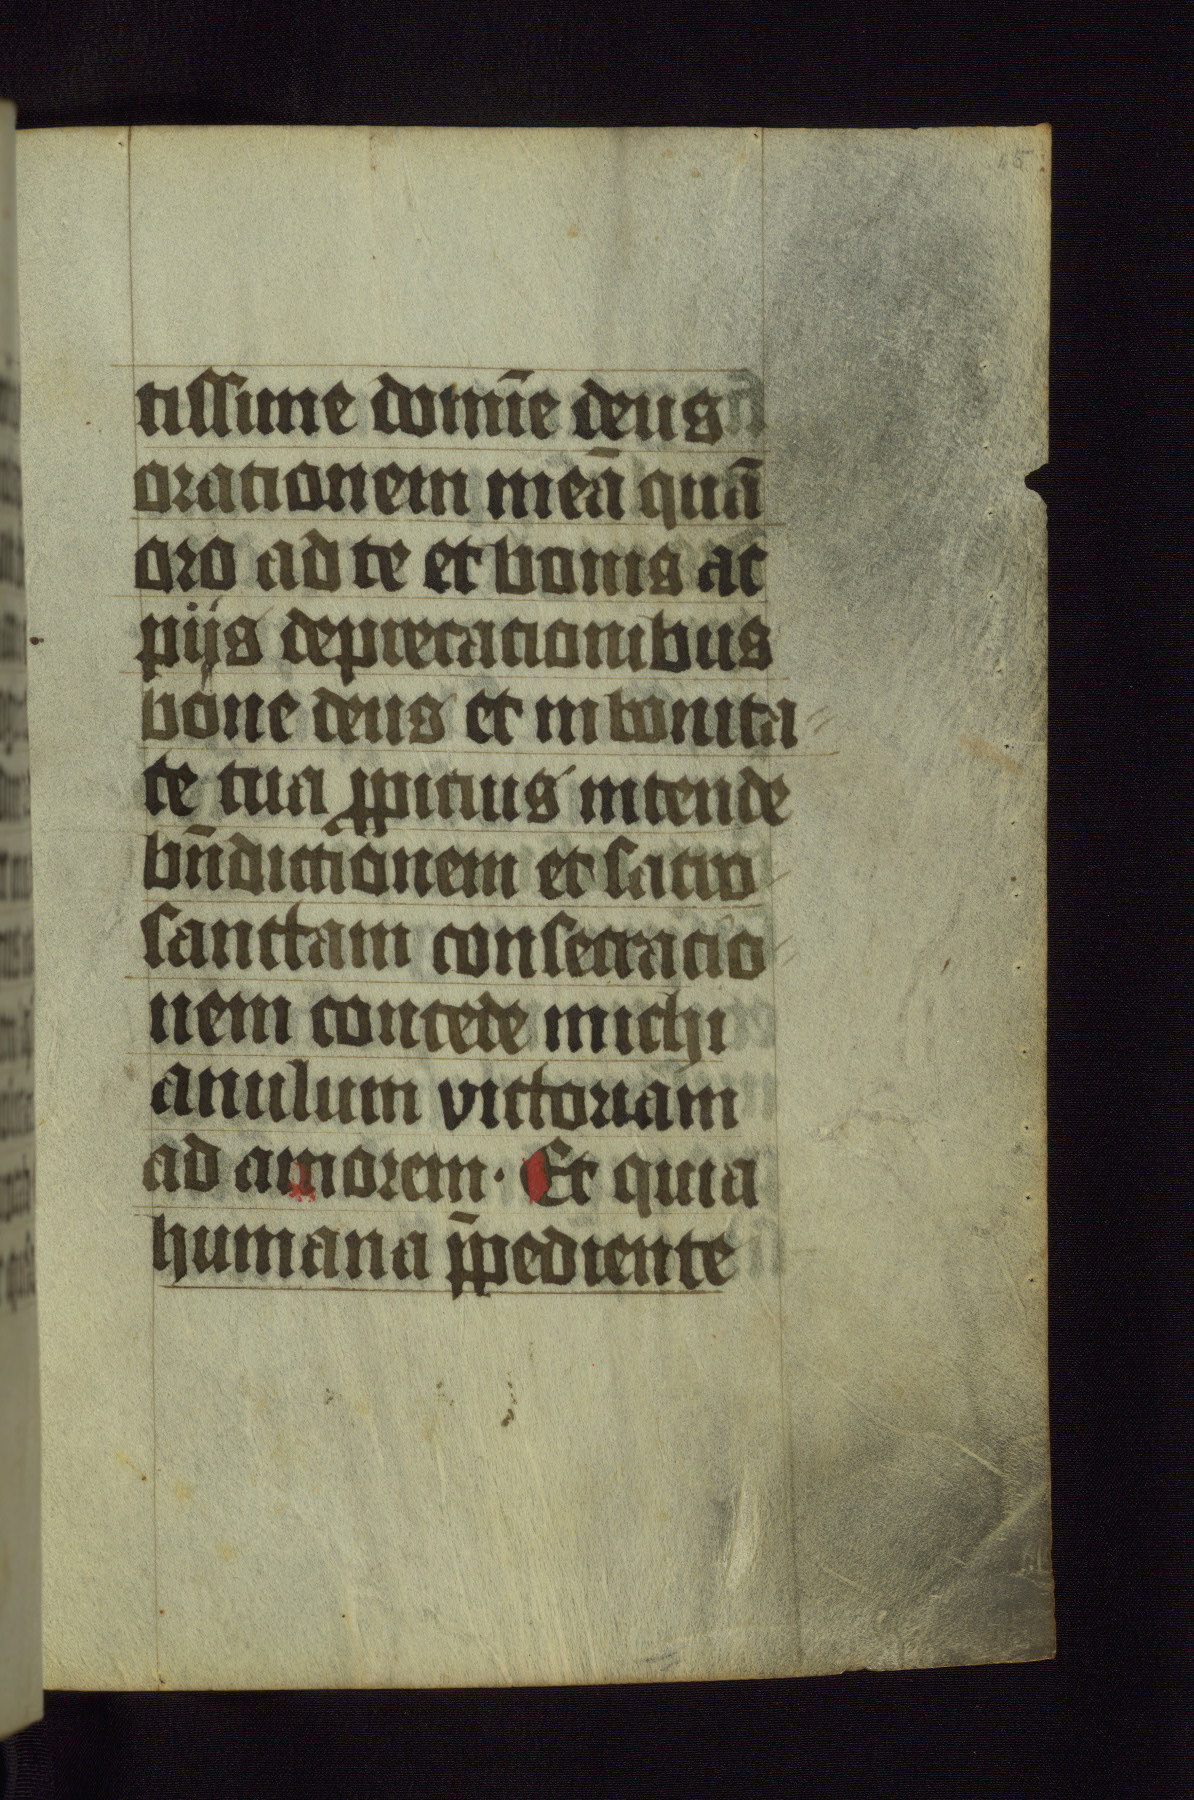 45
tissime domīe deus
orationem meā quā
oro ad te et bonis ac
pijs deprecationibus
bone deus et in bonita
te tua ꝓpicius intende
bn̄dictionem et sacro
sanctam consecracio
nem concede michi
anulum victoriam
ad amorem· Et quia
humana p̄pediente